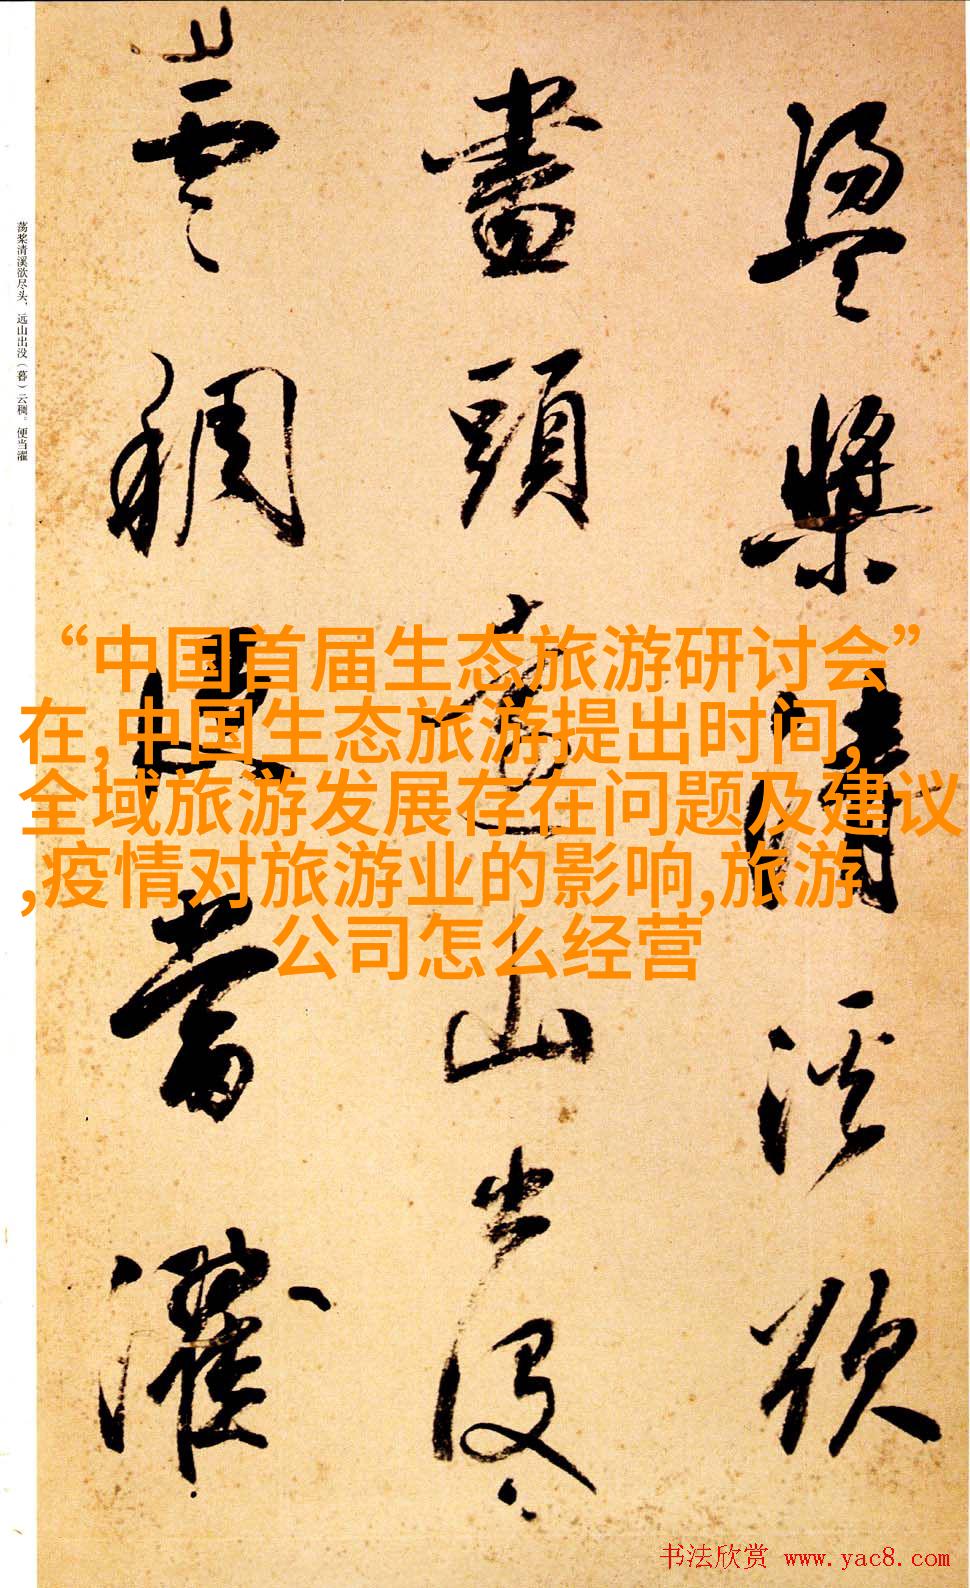 盪槳清溪欲
盡頭遠山出沒
雲稠便當濯
荡桨清溪欲尽头，远山出没（暮）云稠。便当濯
“中国首届生态旅游研讨会”
在,中国生态旅游提出时间,
全域旅游发展存在问题及建议
,疫情对旅游业的影响,旅游
公司怎么经营
书法欣赏 www.yac8.com